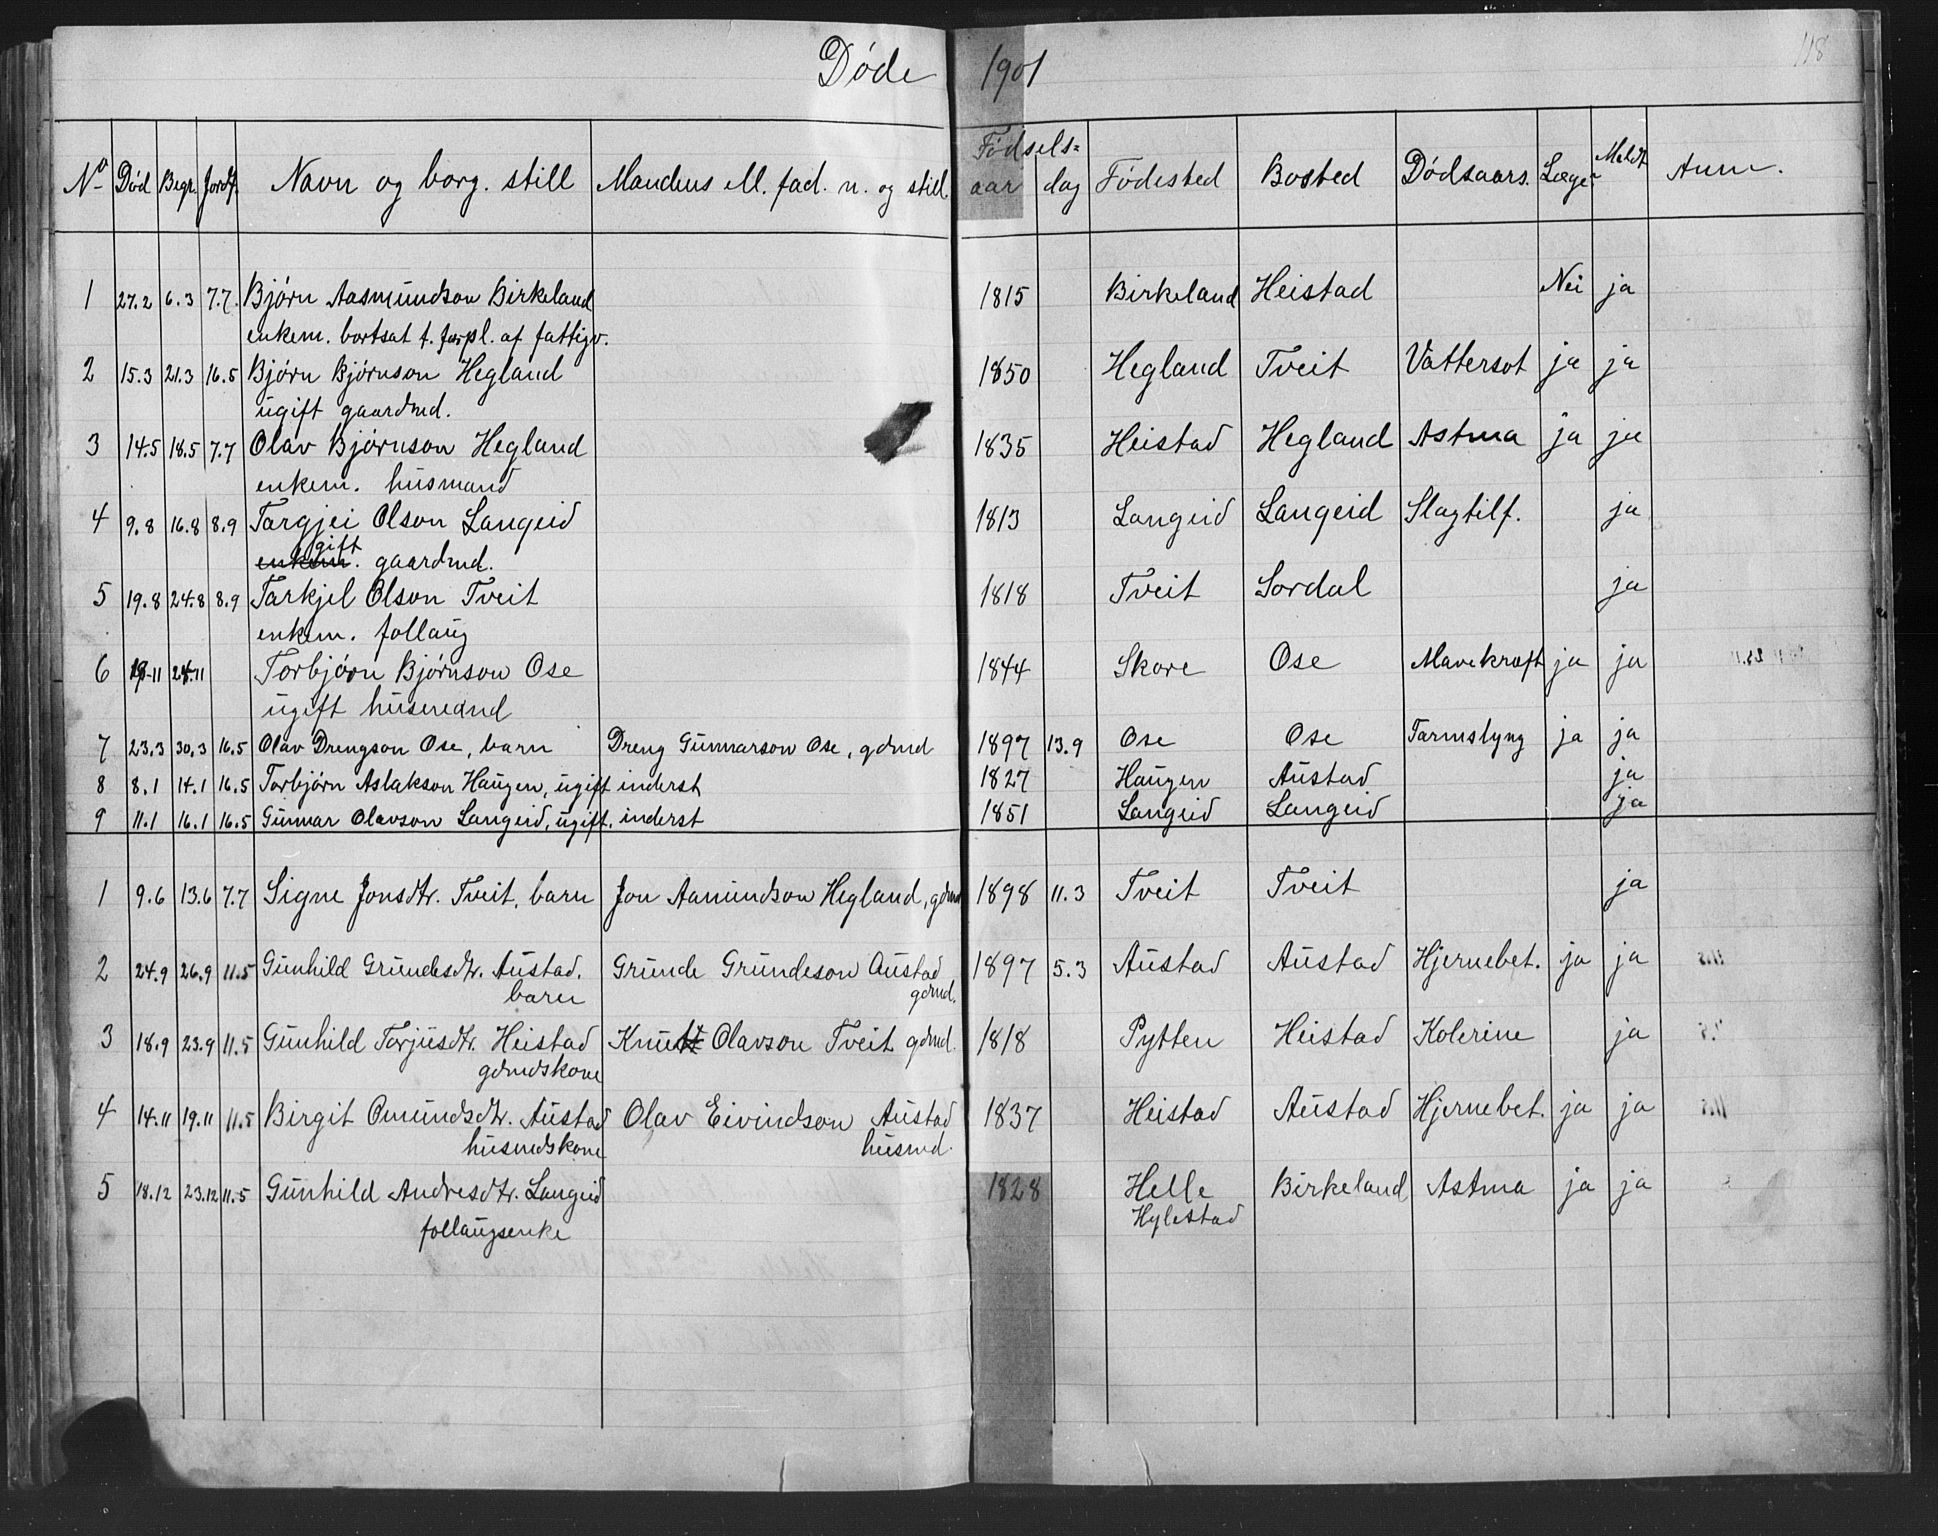 Døde 1901
118
No Død Begr. Jordf. Navn og borg. still Mandens ell. fad. n. og still Fødsels= aar dag Fødested Bosted Dødsaars. Læge Meldt Anm.
1 27.2 6.3 7.7. Bjørn Aasmundson Birkeland 1815 Birkeland Heistad Nei ja
enkem. bortsat t. forpl. af fattigv.
2 15.3 21.3 16.5 Bjørn Bjørnson Hegland 1850 Hegland Tveit Vattersot ja ja
ugift gaardmd.
3 14.5 18.5 7.7 Olav Bjørnson Hegland 1835 Heistad Hegland Astma ja ja
enkem. husmand
4 9.8 16.8 8.9 Targjei Olson Langeid 1813 Langeid Langeid Slagtilf. ja
gift
enkem. gaardmd.
5 19.8 24.8 8.9 Tarkjel Olson Tveit 1818 Tveit Sordal ja
enkem. follaug
6 19.11 24.11 Torbjörn Bjørnson Ose 1844 Skore Ose Mavekræft ja ja
ugift
7 23.3 30.3 16.5 Olav Drengson Ose, barn Dreng Gunnarson Ose, gdmd 1897 13.9 Ose Ose Tarmslyng ja ja
8 8.1 14.1 16.5 Torbjørn Aslakson Haugen, ugift inderst 1827 Haugen Austad ja
9 11.1 16.1 16.5 Gunnar Olavson Langeid, ugift. inderst 1851 Langeid Langeid ja
1 9.6 13.6 7.7 Signe Jonsdtr. Tveit, barn Jon Aamundson Hegland, gdmd 1898 11.3 Tveit Tveit ja
2 24.9 26.9 11.5 Gunhild Grundesdtr. Austad. Grunde Grundeson Austad 1897 5.3 Austad Austad Hjernebet. ja ja
barn gdmd.
3 18.9 23.9 11.5 Gunhild Torjusdtr. Heistad Knut Olavson Tveit gdmd. 1818 Pytten Heistad Kolerine ja
gdmdskone
4 14.11 19.11 11.5 Birgit Omundsdtr. Austad Olav Eivindson Austad 1837 Heistad Austad Hjernebet. ja ja
husmdskone husmd.
5 18.12 23.12 11.5 Gunhild Andresdtr. Langeid 1828 Helle Birkeland Astma ja ja
follaugsenke Hylestad